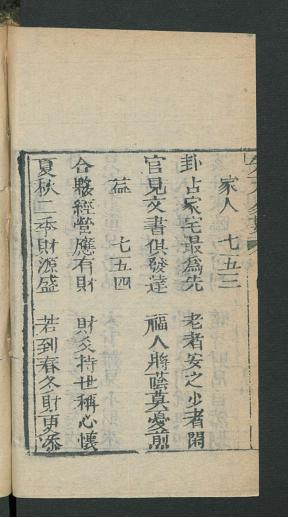 家人 七五三
卦占家宅最為先 老者安之少者閑
官見文書俱發達 福人將蔭莫憂煎
益 七五四
合夥經營應有財 財爻持世稱心懷
夏秋二季財源盛 若到春冬財更添